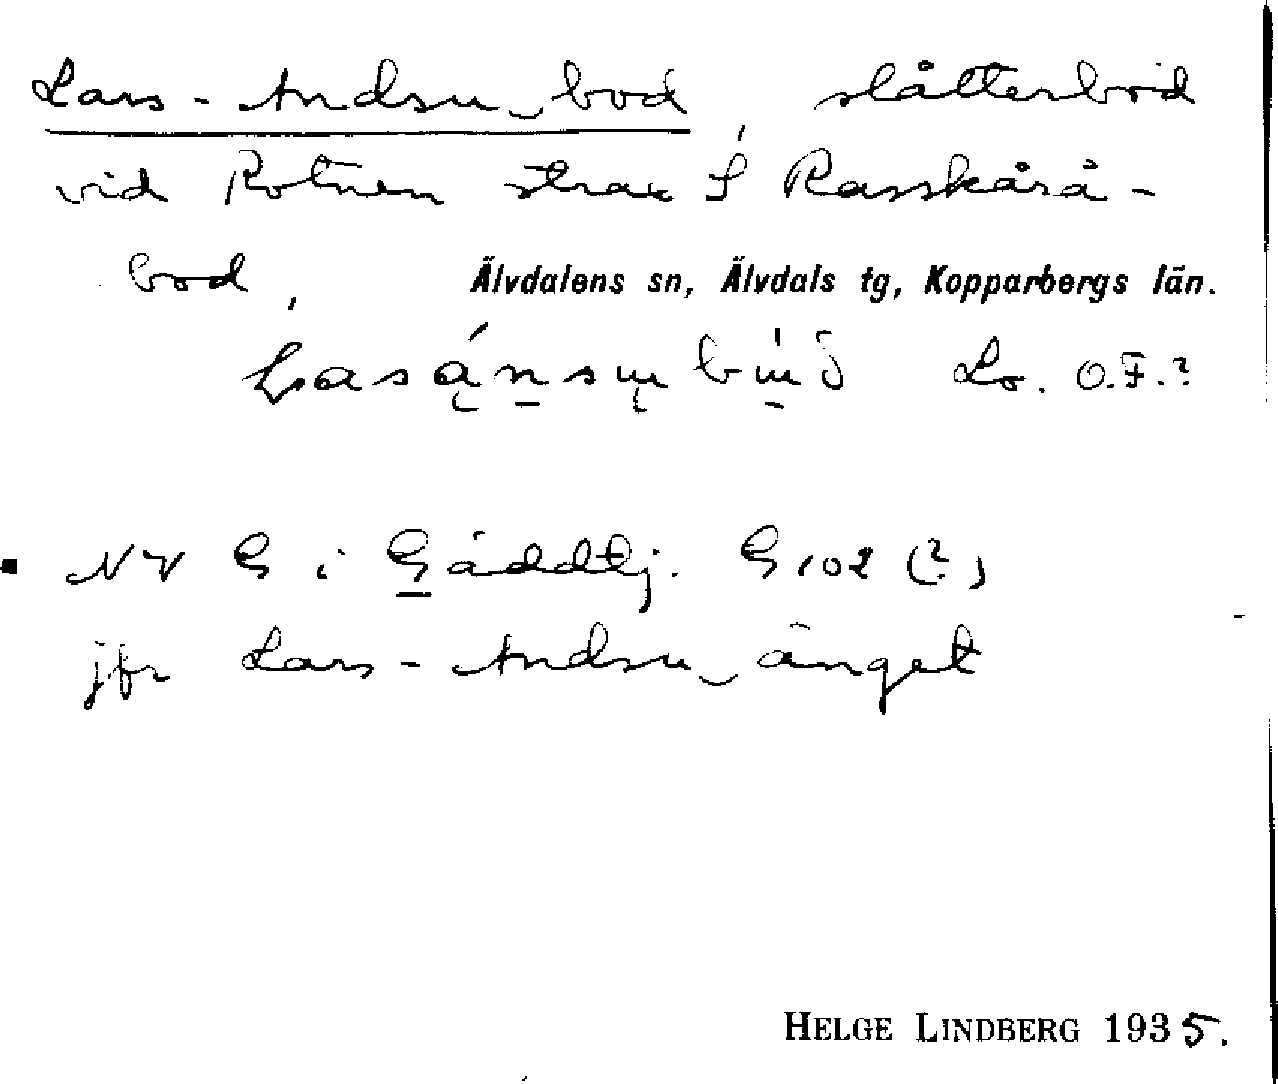 Lars-Andsu‿bod slåtterbod
vid Rotnen strax S Rasskårå-
bod, Älvdalens sn, Älvdals tg, Kopparbergs län.
Lo. O.F.?
NV G i Gäddtj. G 102 (?)
jfr Lars-Andsu‿änget
HELGE LINDBERG 1935.